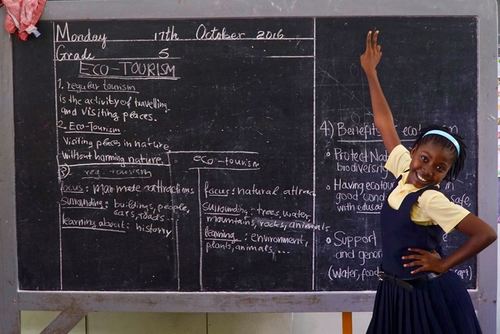 Monday 17th October 2016
Grade 5
ECO-TOURISM
1. regular tourism
is the activity of travelling
and visiting places.
2. Eco-Tourism
Visiting places in nature
without harming nature
3) reg. tourism
focus: man made attractions
Surrounding: buildings, people,
cars, roads...
learning about: history
eco-tourism
focus: natural attrac
Surrounding: trees, water,
mountains, rocks, animals
learning: environment,
plants, animals,...
4) Benefits of eco
Protect Nat
biodiversi
Having ecotou in
good con safe,
with educat
Support
and gene
(Water, food craft)